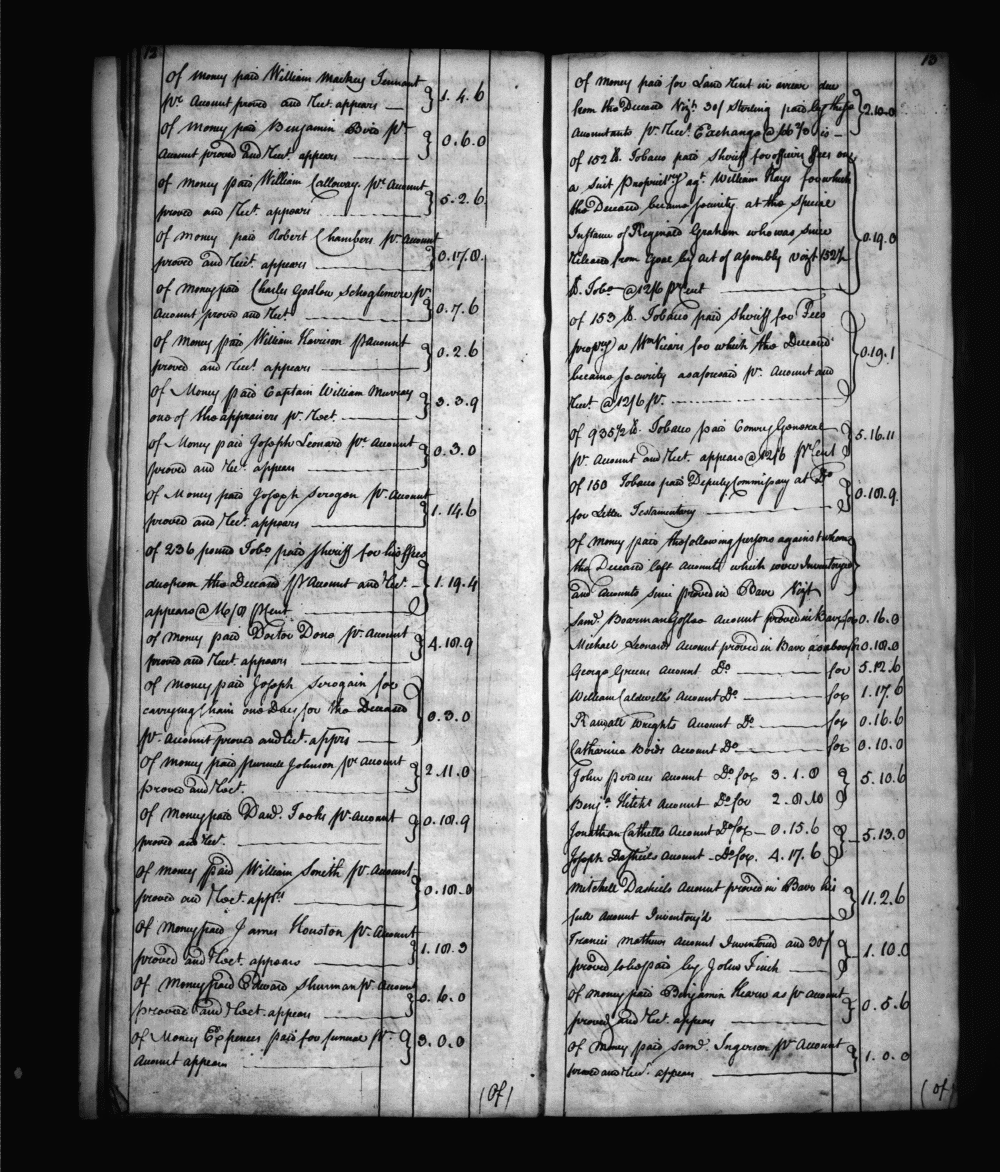 12
Of money paid William Mackey Tennant
pr. Account proved and Rect. appears 1.4.6
Of money paid Benjamin Bird pr.
Account proved and Rect. appears 0.6.0
Of money paid William Calloway pr. Account
proved and Rect. appears 5.2.6
Of money paid Robert Chambers pr. Account
proved and Rect. appears 0.17.8
Of money paid Charles Godlow pr.
Account proved and Rect. 0.7.6
Of money paid William Harrison pr Account
proved and Rect. appears 0.2.6
Of Money paid Captain William Murray
one of the appraisers pr. Rect. 3.3.9
Of Money paid Joseph Leonard pr. Account
proved and Rect. appears 0.3.0
Of Money paid Joseph Serogon pr. Account
proved and Rect. appears 1.14.6
Of 236 pound Tobo. paid Sheriff for his ffees
due from the Deceased pr Account and Rect.
appears @ 16/8 pr Cent 1.19.4
Of money paid Doctor pr. Account
proved and Rect. appears 4.18.9
Of money paid Joseph Serogain for
carrying Chain one Day for the Deceased
pr. Account proved and Rect. apprs 0.3.0
Of money paid Johnson pr Account
proved and Rect. 2.11.0
Of Money paid Danl. pr. Account
proved and Rect. 0.18.9
Of money paid William Smith pr. Account
proved and Rect. apprs. 0.18.0
Of Money paid James Houston pr. Account
proved and Rect. appears 1.18.3
Of Money paid Edward Shurman pr. Account
proved and Rect. appears 0.6.0
Of Money Expences paid for funeral pr.
Account appears 3.0.0
(Of)
13
Of money paid for Land Rent in arrear due
from the Deceased Vizt. 30/ Sterling paid by these
Accountants pr. Rect. Exchange @ 66⅔ is 2.10.0
Of 152 lb. Tobacco paid Sheriff for officers ffees on
a Suit Proprietry agt. William Hays for which
the Deceased became Security at the Special
Instance of Reginald Graham who was Since
Released from Goal by act of Assembly vizt 152
lb. Tobo. @ 12/6 pr Cent 0.19.0
Of 153 lb. Tobacco paid Sheriff for Fees
propry a Wm Vears for which the Deceased
became Security as aforesaid pr. Account and
Rect @ 12/6 pr. 0.19.1
Of 935½ lb. Tobacco paid Comry General
pr. Account and Rect. appears @ 12/6 pr Cent 5.16.11
Of 150 Tobacco paid Deputy Commissary at Do
for Letters Testamentary 0.18.9
Of money paid the following persons against whom
the Deceased left Accounts which were Inventoryed
and Accounts since proved in Barr Vizt
Saml. Bowman Goslee Account proved in Barr for 0.16.0
Michael Leonards Account proved in Barr as above for 0.18.0
George Greens Account Do. for 5.12.6
William Caldwells Account Do for 1.17.6
Randall Wrights Account Do. for 0.16.6
Catharine Birds Account Do for 0.10.0
John Perdues Account Do. for 3.1.8
Benja. Hitchs Account Do for 2.8.10 5.10.6
Jonathan Cathells Account Do for 0.15.6
Joseph Dashiels Account Do for 4.17.6 5.13.0
Mitchell Dashiels Account proved in Barr his
full Account Inventory'd 11.2.6
Francis Mathews Account Inventored and 30/
proved to be paid by John Finch 1.10.0
Of money paid Benjamin Hearn as pr Account
proved and Rect. appears 0.5.6
Of Money paid Saml. Ingerson pr Account
proved and Rect. appears 1.0.0
(Of)